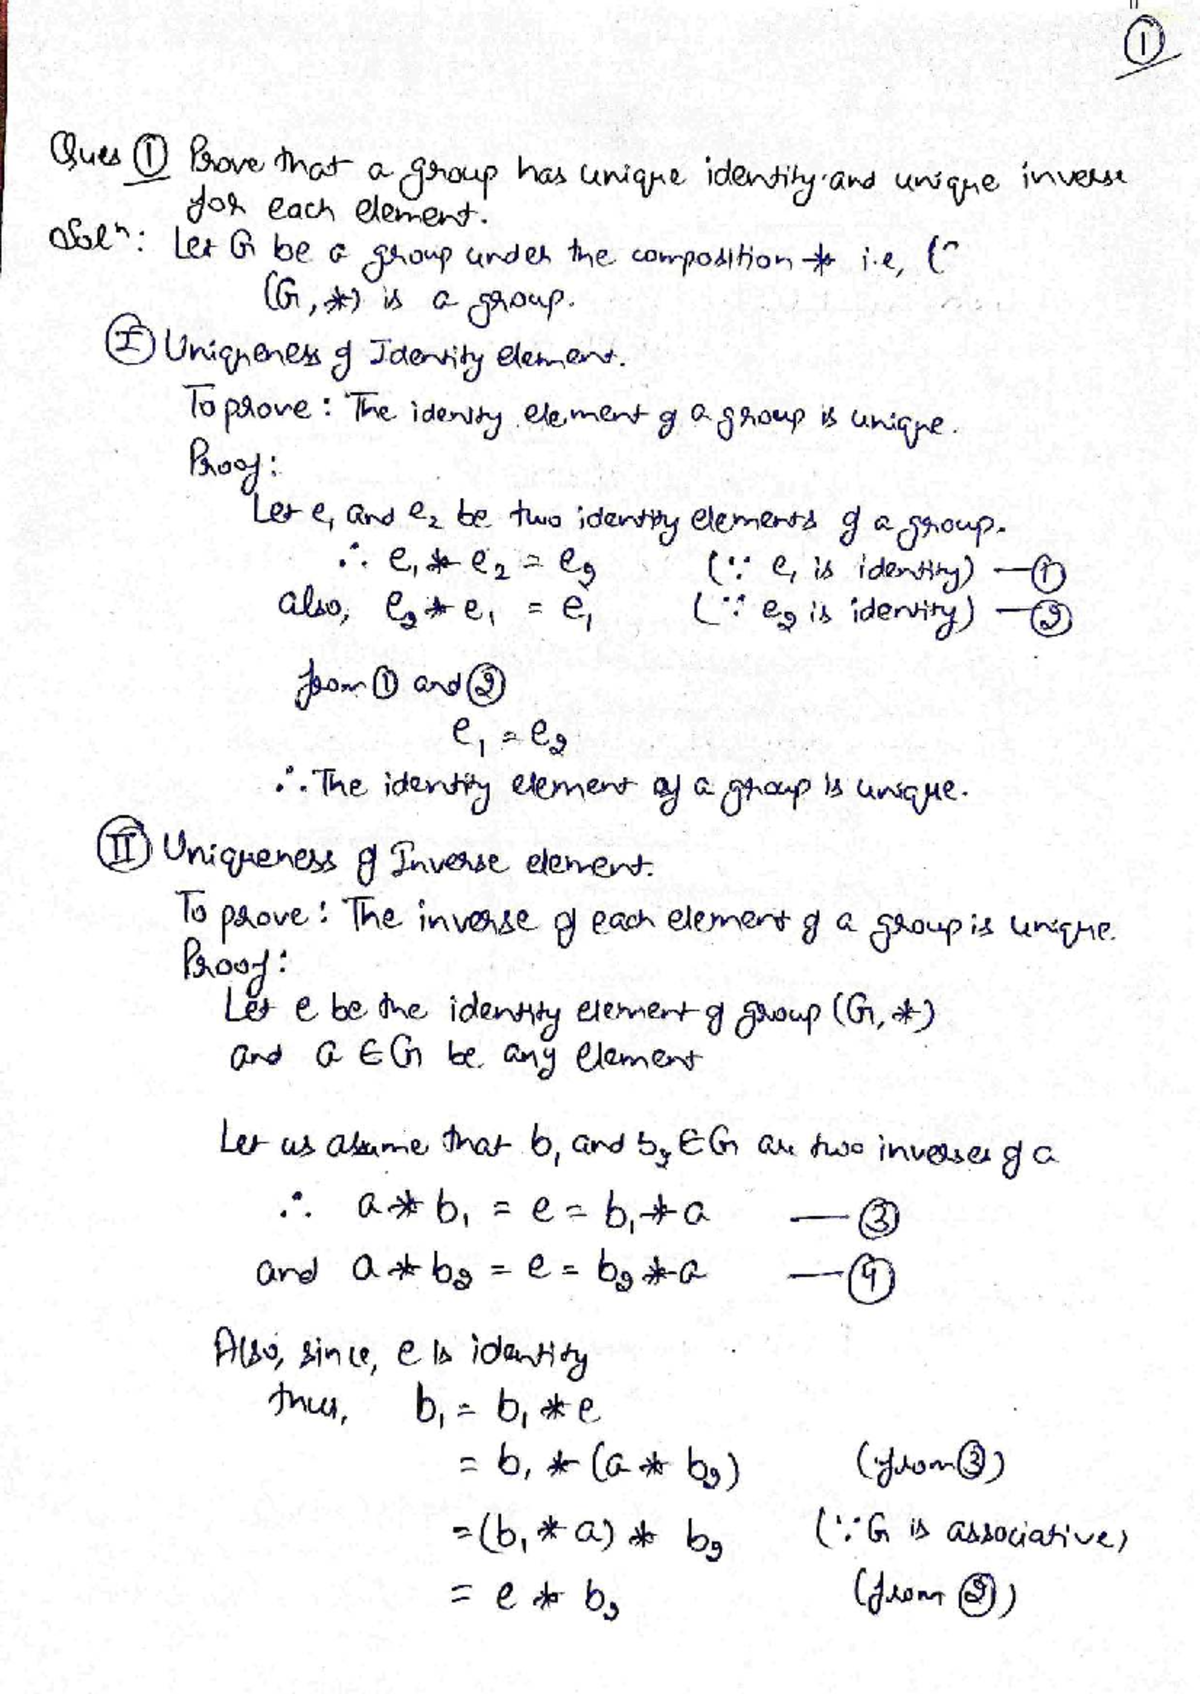 ①
Ques ① Prove that a group has unique identity and unique inverse
for each element.
Solⁿ: Let G be a group under the composition * i.e, (
(G, *) is a group.
Ⓘ Uniqueness of Identity element.
To prove: The identity element of a group is unique.
Proof:
Let e₁ and e₂ be two identity elements of a group.
∴ e₁ * e₂ = e₂ (∵ e₁ is identity) —①
also, e₂ * e₁ = e₁ (∵ e₂ is identity) —②
from ① and ②
e₁ = e₂
∴ The identity element of a group is unique.
(II) Uniqueness of Inverse element.
To prove: The inverse of each element of a group is unique.
Proof:
Let e be the identity element of group (G, *)
and a ∈ G be any element
Let us assume that b₁ and b₂ ∈ G are two inverses of a
∴ a * b₁ = e = b₁ * a —③
and a * b₂ = e = b₂ * a —④
Also, since, e is identity
thus, b₁ = b₁ * e
= b₁ * (a * b₂) (from ③)
= (b₁ * a) * b₂ (∵ G is associative)
= e * b₂ (from ②)